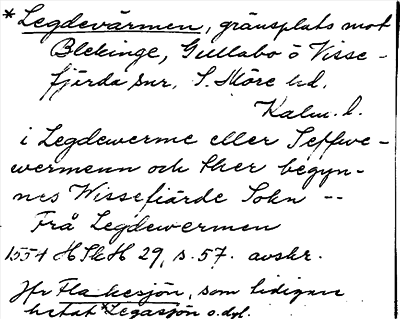 *Legdevärmen, gränsplats mot
Blekinge, Gullabo ö Visse-
fjärda snr, S. Möre hd,
Kalm. l.
i Legdewerme eller Seffwe-
wermenn och ther begyn-
nes Wissefiärde Sokn --
Frå Legdewermen
1554 HSkH 29, s. 57. avskr.
Jfr Flakesjön, som tidigare
hetat *Legasjön o.dyl.